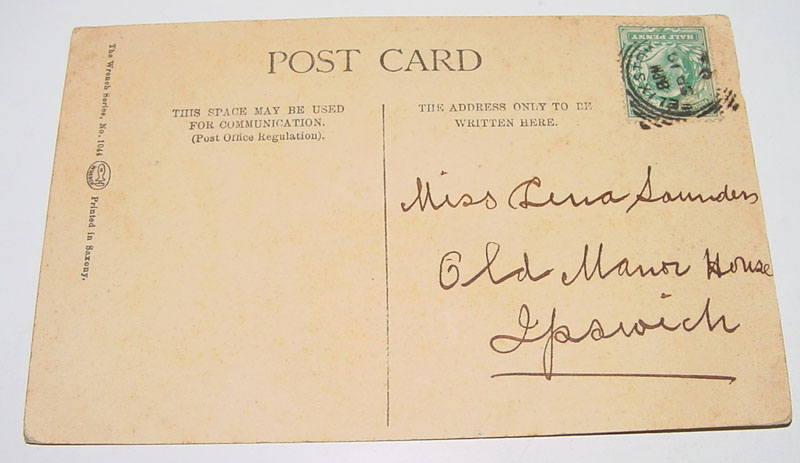 POST CARD
The Wrench Series, No. 1044
Printed in Saxony.
THIS SPACE MAY BE USED
FOR COMMUNICATION.
(Post Office Regulation).
THE ADDRESS ONLY TO BE
WRITTEN HERE.
HALF PENNY
Miss Lena Saunders
Old Manor House
Ipswich